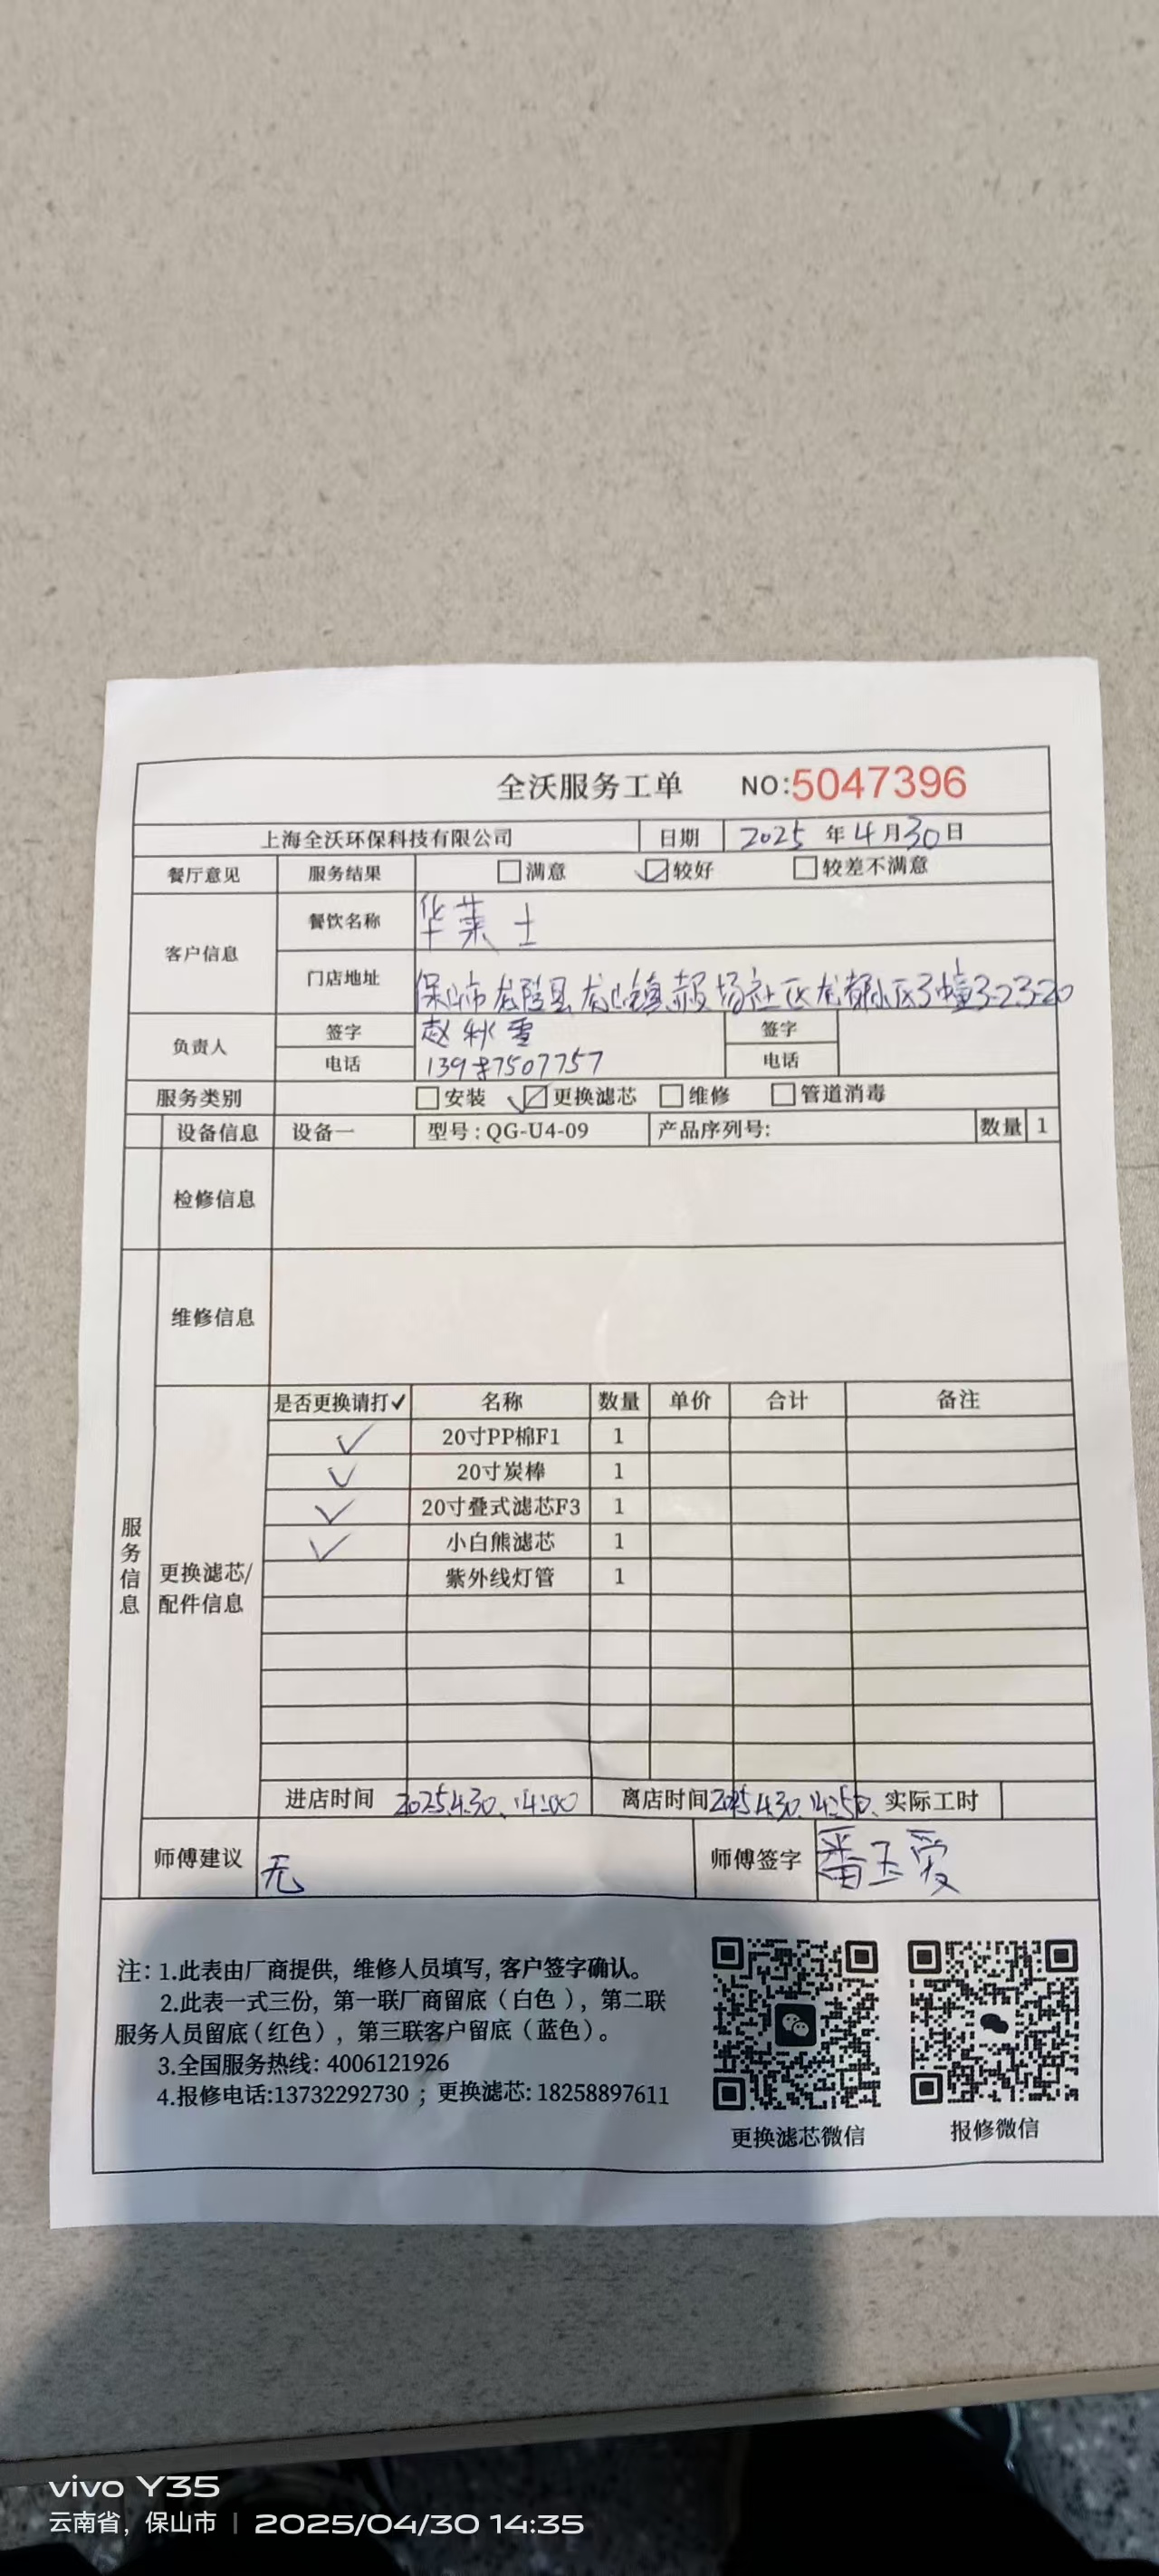 全沃服务工单 NO:5047396
上海全沃环保科技有限公司 日期 2025 年 4 月 30 日
餐厅意见 服务结果 满意 较好 较差不满意
客户信息 餐饮名称 华莱士
门店地址 保山市龙陵县龙山镇赧场社区龙都小区3幢3-23-20
负责人 签字 赵秋雪 签字
电话 139 7507757 电话
服务类别 安装 更换滤芯 维修 管道消毒
设备信息 设备一 型号:QG-U4-09 产品序列号: 数量 1
检修信息
维修信息
服务信息
更换滤芯/配件信息
是否更换请打✓ 名称 数量 单价 合计 备注
✓ 20寸PP棉F1 1
✓ 20寸炭棒 1
✓ 20寸叠式滤芯F3 1
✓ 小白熊滤芯 1
紫外线灯管 1
进店时间 2025.4.30. 14:00 离店时间 2025.4.30. 14:50. 实际工时
师傅建议 无 师傅签字 番玉爱
注: 1.此表由厂商提供, 维修人员填写, 客户签字确认。
2.此表一式三份, 第一联厂商留底(白色), 第二联
服务人员留底(红色), 第三联客户留底(蓝色)。
3.全国服务热线: 4006121926
4.报修电话:13732292730 ; 更换滤芯: 18258897611
更换滤芯微信 报修微信
vivo Y35
云南省, 保山市 | 2025/04/30 14:35